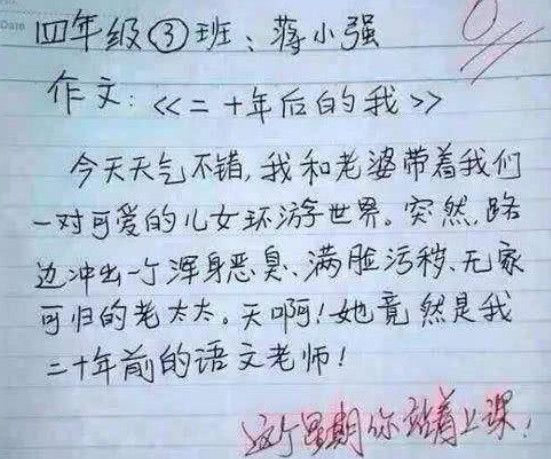 Date
0
四年级③班:蒋小强
作文:<<二十年后的我>>
今天天气不错,我和老婆带着我们
一对可爱的儿女环游世界。突然,路
边冲出一个浑身恶臭、满脸污秽、无家
可归的老太太。天啊!她竟然是我
二十年前的语文老师!
这个星期你站着上课!